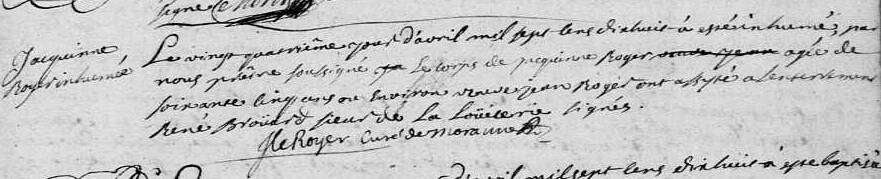 signé
Jacquinne
Royer inhumée
Le vingt quatrième jour d'avril mil sept cens dix huict à esté inhumé, par
nous prêtre soussigné le corps de jacquinne Royer agée de
soixante cinq ans ou Environ veuve jean Roger ont assisté a lenterrement
René Broüard sieur de La Loüetterie signés.
LeRoyer Curé de Moranne
avril mil sept cens dix huict à esté baptisé